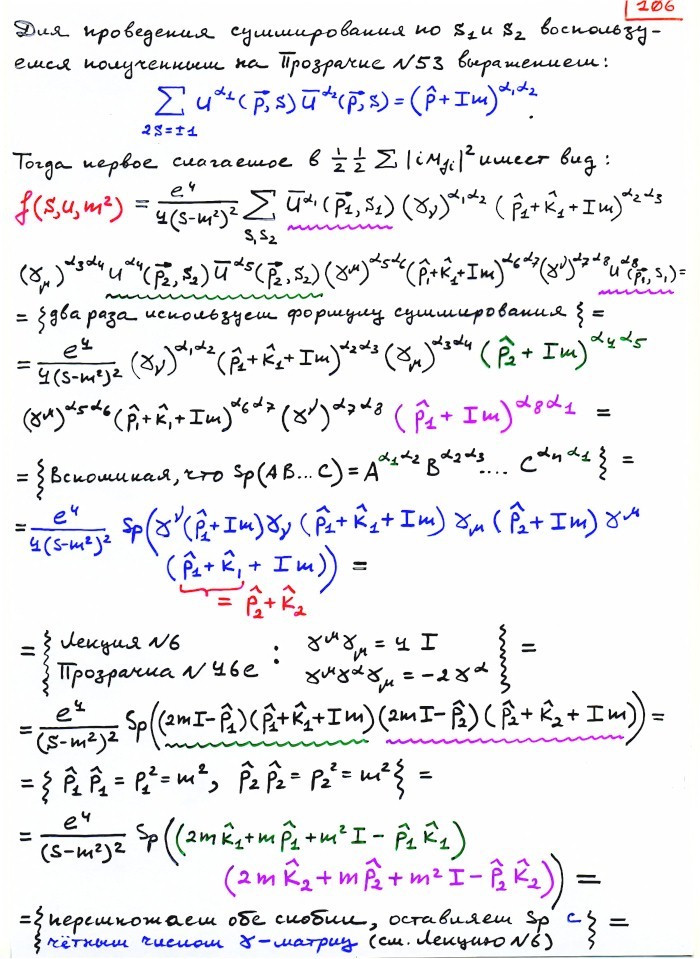 106
Для проведения суммирования по S₁ и S₂ воспользу-
емся полученным на Прозрачке N53 выражением:
∑_{2S=±1} u^{α₁}(p⃗,s) ū^{α₂}(p⃗,s) = (p̂ + Im)^{α₁α₂}.
Тогда первое слагаемое в ½ ½ ∑ |iM_{fi}|² имеет вид:
f(s,u,m²) = e⁴/4(s-m²)² ∑_{S₁S₂} ū^{α₁}(p⃗₁,s₁) (γ_ν)^{α₁α₂} (p̂₁+k̂₁+Im)^{α₂α₃}
(γ_μ)^{α₃α₄} u^{α₄}(p⃗₂,s₂) ū^{α₅}(p⃗₂,s₂) (γ^μ)^{α₅α₆} (p̂₁+k̂₁+Im)^{α₆α₇} (γ^ν)^{α₇α₈} u^{α₈}(p⃗₁,s₁) =
= {два раза используем формулу суммирования} =
= e⁴/4(s-m²)² (γ_ν)^{α₁α₂} (p̂₁+k̂₁+Im)^{α₂α₃} (γ_μ)^{α₃α₄} (p̂₂ + Im)^{α₄α₅}
(γ^μ)^{α₅α₆} (p̂₁+k̂₁+Im)^{α₆α₇} (γ^ν)^{α₇α₈} (p̂₁ + Im)^{α₈α₁} =
= {Вспоминая, что Sp(AB...C) = A^{α₁α₂} B^{α₂α₃} .... C^{αₙα₁}} =
= e⁴/4(s-m²)² Sp(γ^ν(p̂₁+Im)γ_ν (p̂₁+k̂₁+Im) γ_μ (p̂₂+Im) γ^μ
(p̂₁+k̂₁ + Im)) =
= p̂₂+k̂₂
= {Лекция N6 : γ^μγ_μ = 4 I
Прозрачка N 46е γ^μγ^αγ_μ = -2γ^α} =
= e⁴/(s-m²)² Sp((2mI-p̂₁)(p̂₁+k̂₁+Im)(2mI-p̂₂)(p̂₂+k̂₂+Im)) =
= {p̂₁p̂₁ = p₁² = m², p̂₂p̂₂ = p₂² = m²} =
= e⁴/(s-m²)² Sp((2mk̂₁+mp̂₁+m²I - p̂₁k̂₁)
(2mk̂₂+mp̂₂+m²I-p̂₂k̂₂)) =
= {перемножаем обе скобки, оставляем Sp с
чётным числом γ-матриц (см. Лекцию N6)} =